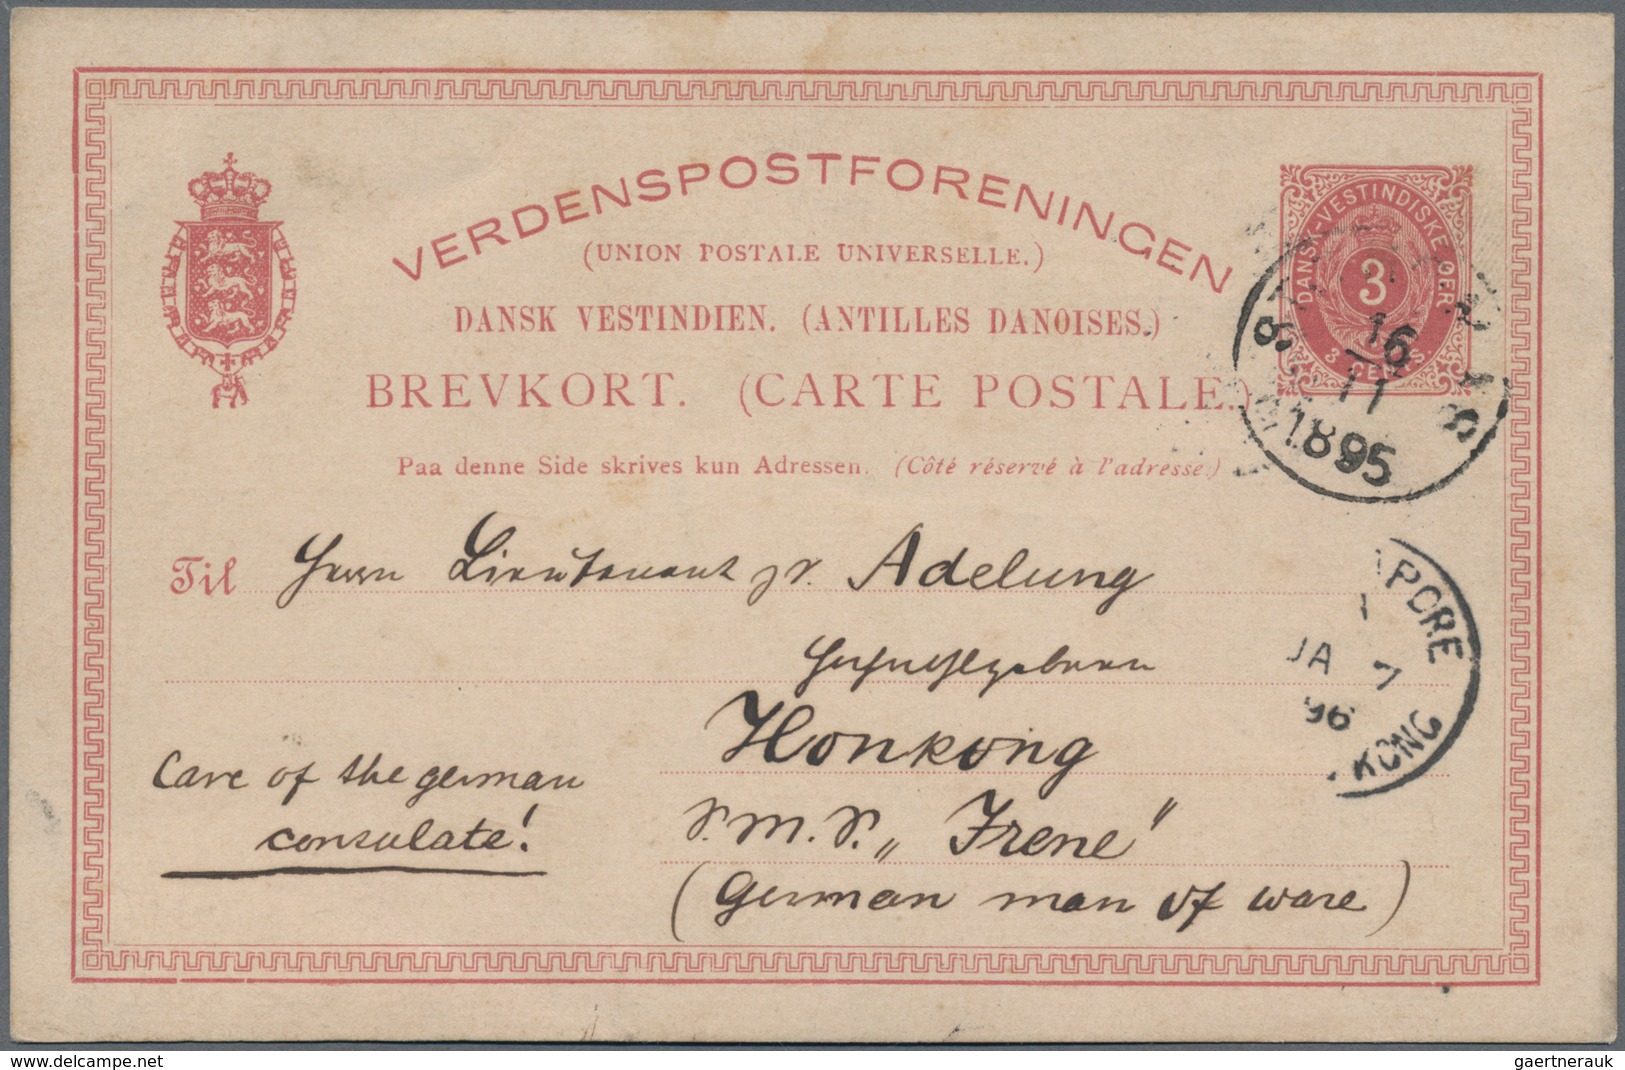 VERDENSPOSTFORENINGEN
(UNION POSTALE UNIVERSELLE.)
DANSK VESTINDIEN. (ANTILLES DANOISES.)
BREVKORT. (CARTE POSTALE.)
Paa denne Side skrives kun Adressen. (Côté réservé à l'adresse.)
DANSK VESTINDISKE ØER
3
3 CENTS.
16
11
1895
Til Herrn Lieutenant z. S. Adelung
Honkong
S.M.S. „Irene"
(German man of ware)
Care of the german
consulate!
PORE
JA 7
96
KONG
delcampe.net
gaertnerauk